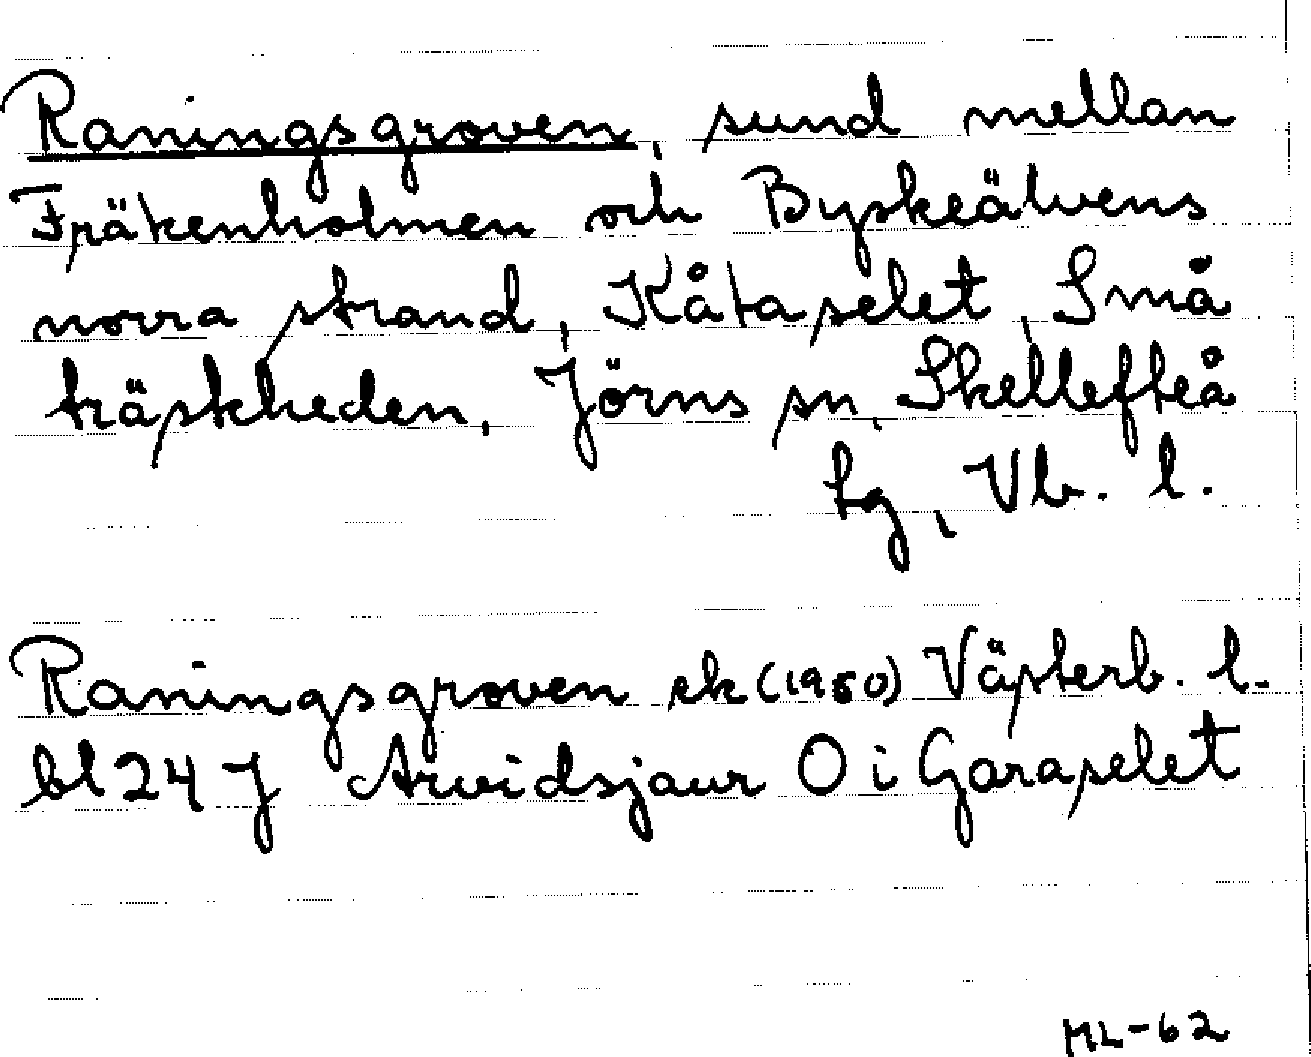 Raningsgroven, sund mellan
Fräkenholmen och Byskeälvens
norra strand, Kåtaselet, Små
träskheden, Jörns sn, Skellefteå
tg, Vb. l.
Raningsgroven ek (1950) Västerb. l.
bl 24 J Arvidsjaur O i Garaselet
ML-62